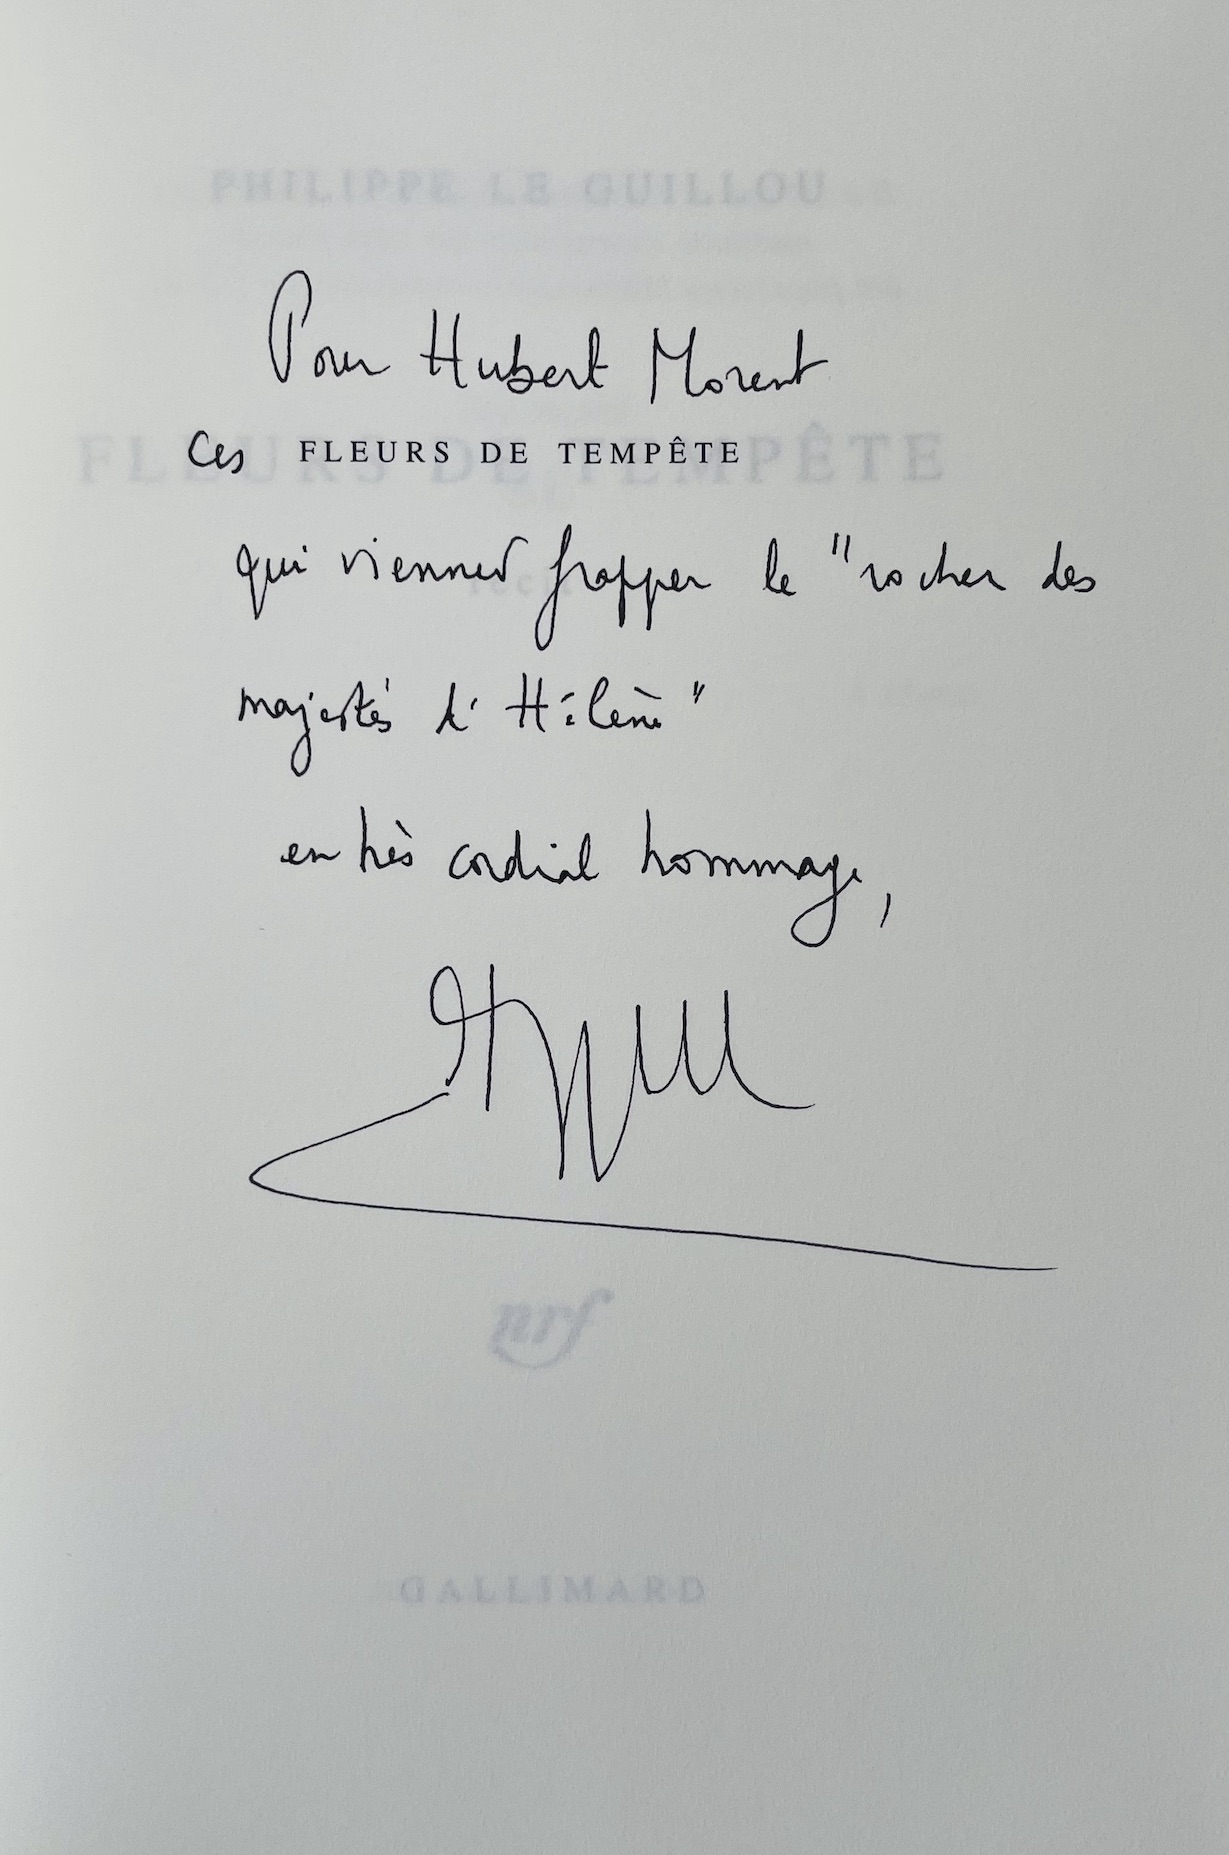 PHILIPPE LE GUILLOU
Pour Hubert Morent
Ces FLEURS DE TEMPÊTE
FLEURS DE TEMPÊTE
qui viennent frapper le "rocher des
récit
majestés d'Hélène"
en très cordial hommage,
nrf
GALLIMARD